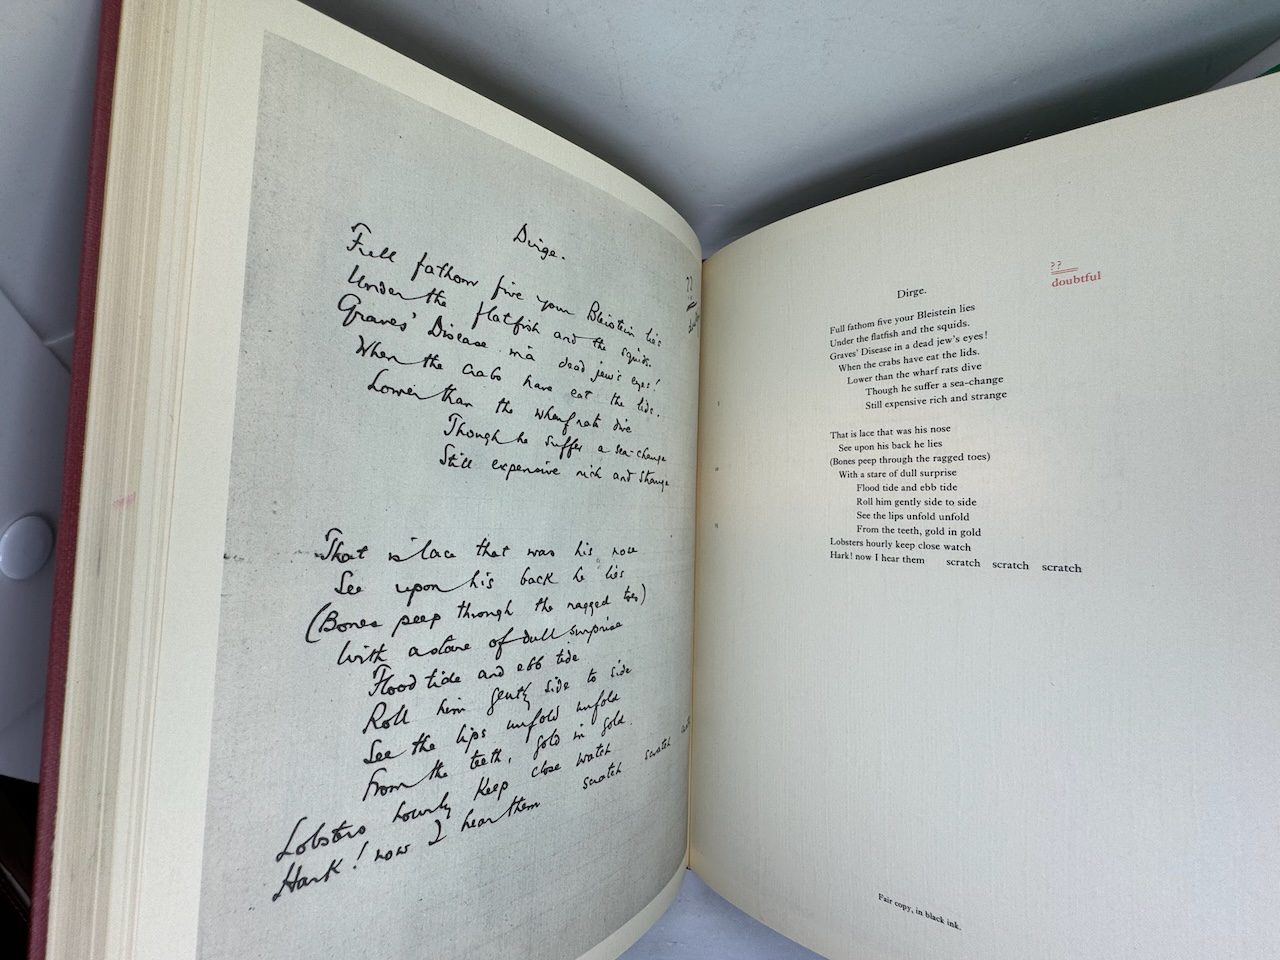 Dirge.
Full fathom five your Bleistein lies
Under the flatfish and the squids.
Graves' Disease in a dead jew's eyes!
When the crabs have eat the lids.
Lower than the wharf rats dive
Though he suffer a sea-change
Still expensive rich and strange
That is lace that was his nose
See upon his back he lies
(Bones peep through the ragged toes)
With a stare of dull surprise
Flood tide and ebb tide
Roll him gently side to side
See the lips unfold unfold
From the teeth, gold in gold.
Lobsters hourly keep close watch
Hark! now I hear them scratch scratch
??
??
doubtful
Dirge.
Full fathom five your Bleistein lies
Under the flatfish and the squids.
Graves' Disease in a dead jew's eyes!
When the crabs have eat the lids.
Lower than the wharf rats dive
Though he suffer a sea-change
Still expensive rich and strange
That is lace that was his nose
See upon his back he lies
(Bones peep through the ragged toes)
With a stare of dull surprise
Flood tide and ebb tide
Roll him gently side to side
See the lips unfold unfold
From the teeth, gold in gold
Lobsters hourly keep close watch
Hark! now I hear them scratch scratch scratch
Fair copy, in black ink.